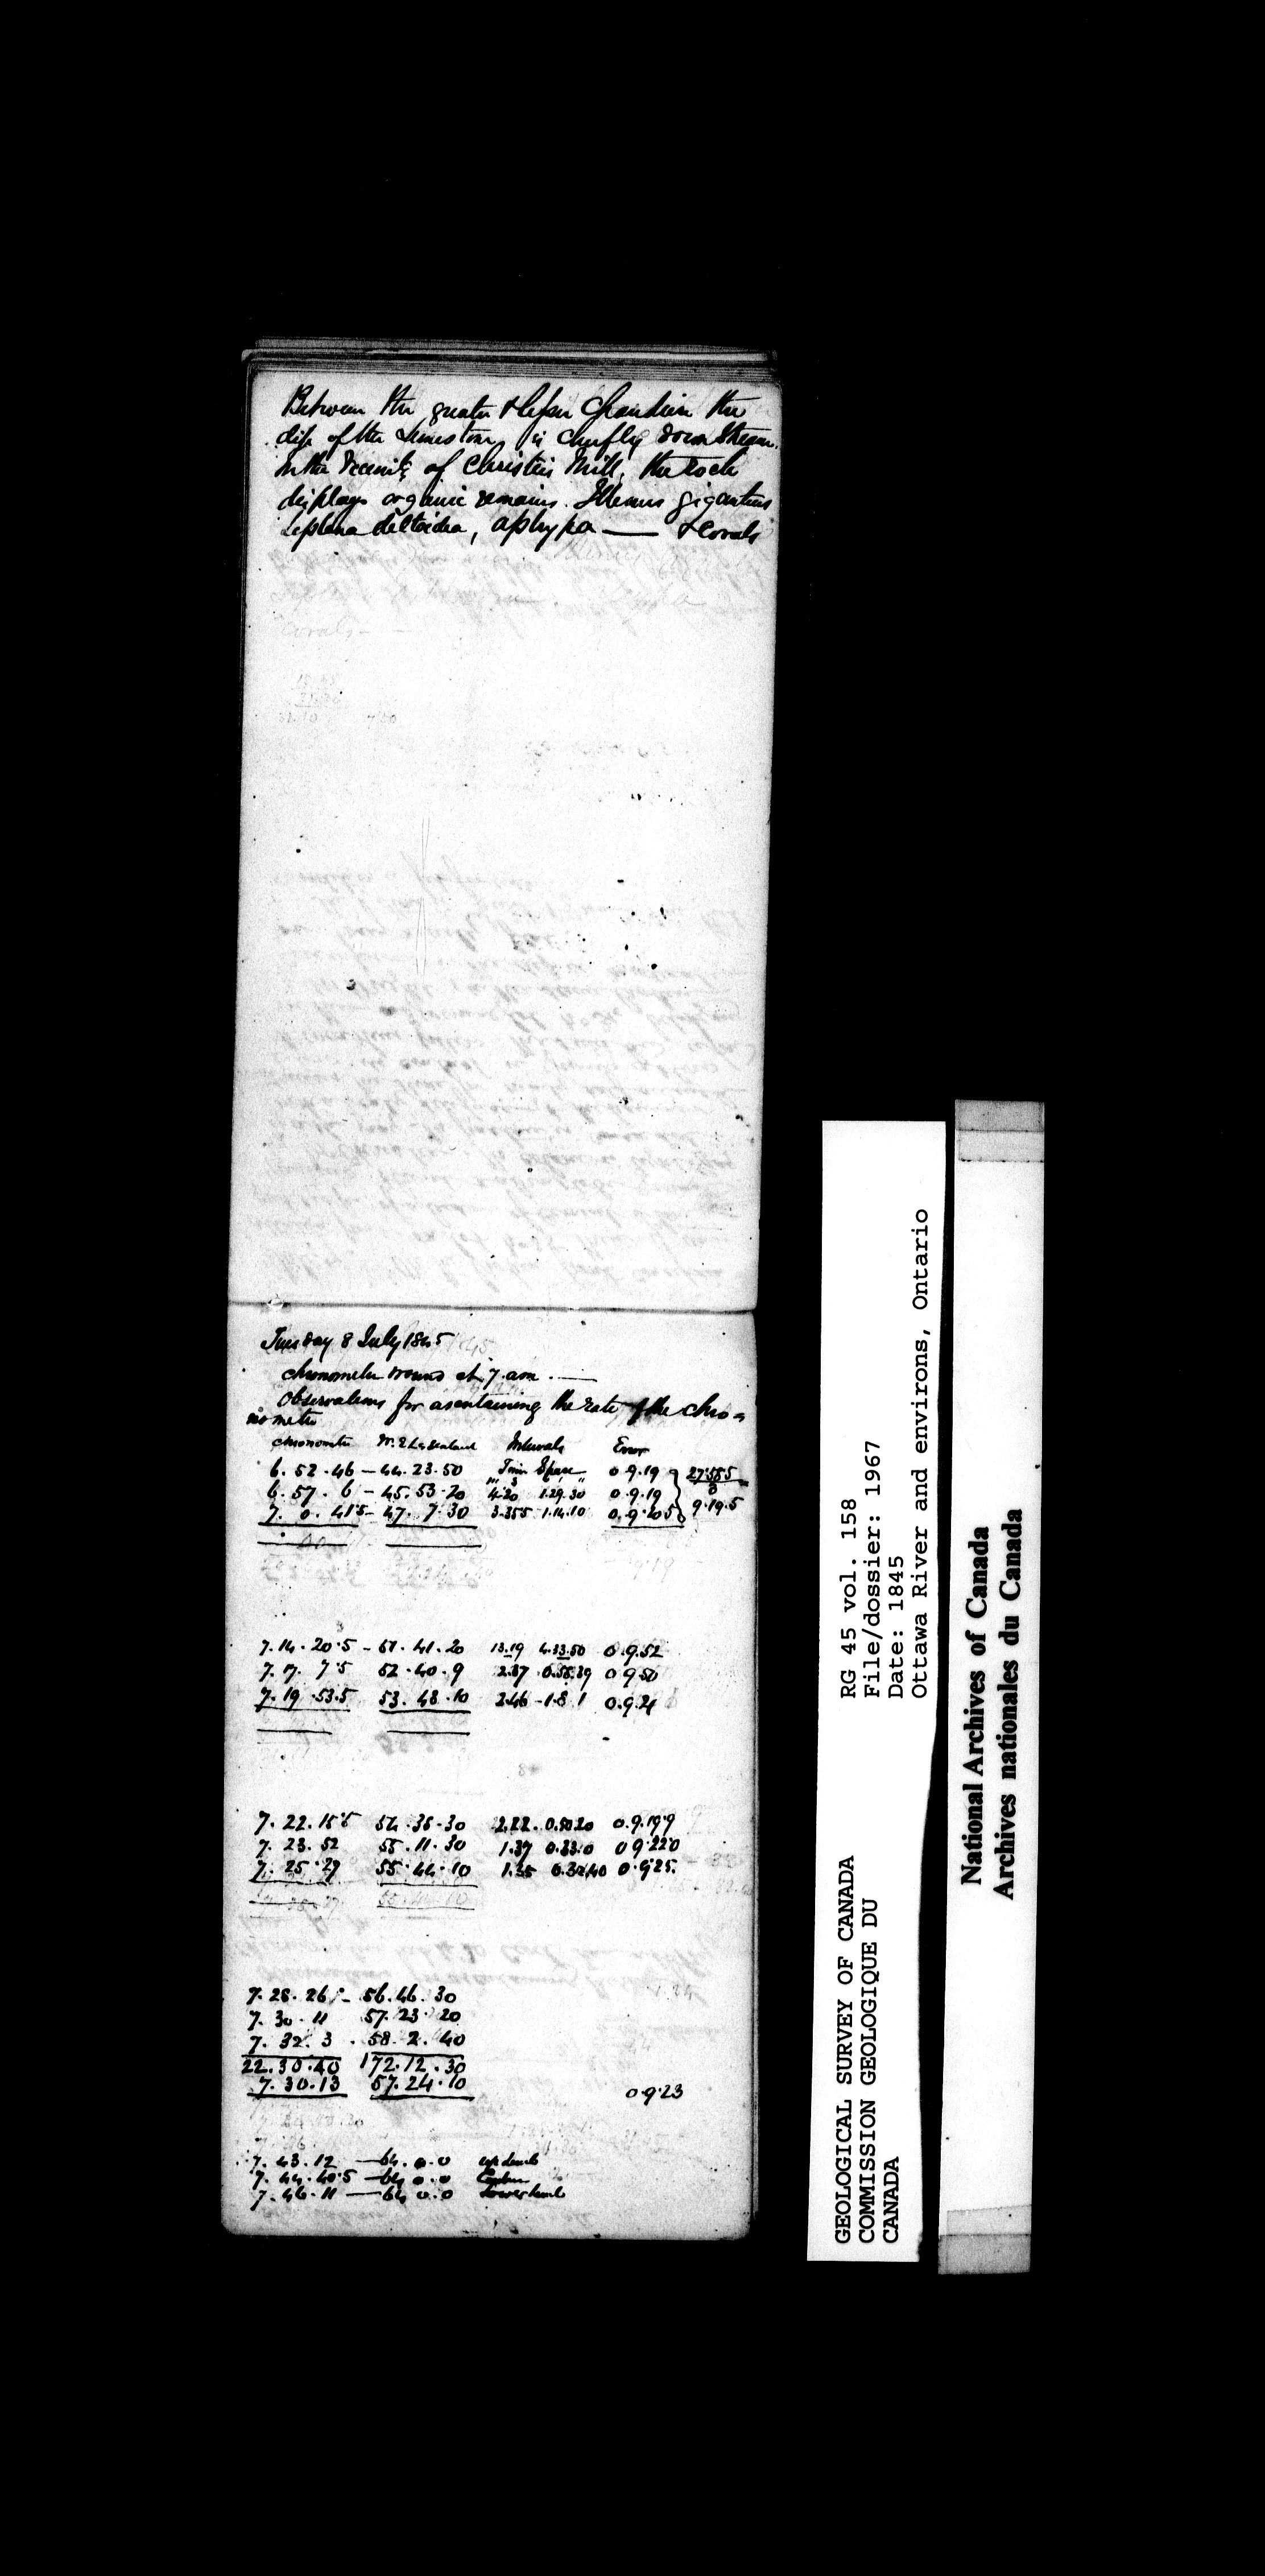 Between the greater & lesser Chaudiere the
dip of the Limestone is chiefly down stream.
In the vicinity of Christies Mill, the rock
displays organic remains. Illenus giganteus
Leptena deltoidea, aphypa —— & Corals
Tuesday 8 July 1845
Chronometer wound at 7. am. —
Observations for ascertaining the rate of the chro=
nometer
Chronometer Intervals Error
6. 52 . 46 — 44. 23. 50 Time Space 0 9.19 27.585
6. 57. 6 — 45. 53. 20 4.20 1.29.30 0.9.19 3
7. 0. 41.5 — 47. 7. 30 3.355 1.14.10 0.9.20.5 9.19.5
7. 14. 20.5 — 51. 41. 20 13.19 4.33.50 0.9.52
7. 17. 7.5 52. 40. 9 2.37 0.58.39 0 9.50
7. 19. 53.5 53. 48. 10 2.46 — 1.8.1 0.9.21
7. 22. 15.5 54. 38. 30 2.22. 0.50.20 0.9.19.9
7. 23. 52 55. 11. 30 1.37 0.33.0 0 9.22.0
7. 25. 27 55. 44. 10 1.35 0.32.40 0.9.25.
7. 28. 26 — 56. 46. 30
7. 30. 11 57. 23. 20
7. 32. 3. 58. 2. 40
22. 30. 40 172. 12. 30
7. 30. 13 57. 24. 10 0.9.23
7. 43. 12 — 64. 0. 0 up limb
7. 44. 40.5 — 64 0. 0 Center
7. 46. 11 — 64 0. 0 Lower limb
GEOLOGICAL SURVEY OF CANADA
COMMISSION GEOLOGIQUE DU
CANADA
RG 45 vol. 158
File/dossier: 1967
Date: 1845
Ottawa River and environs, Ontario
National Archives of Canada
Archives nationales du Canada